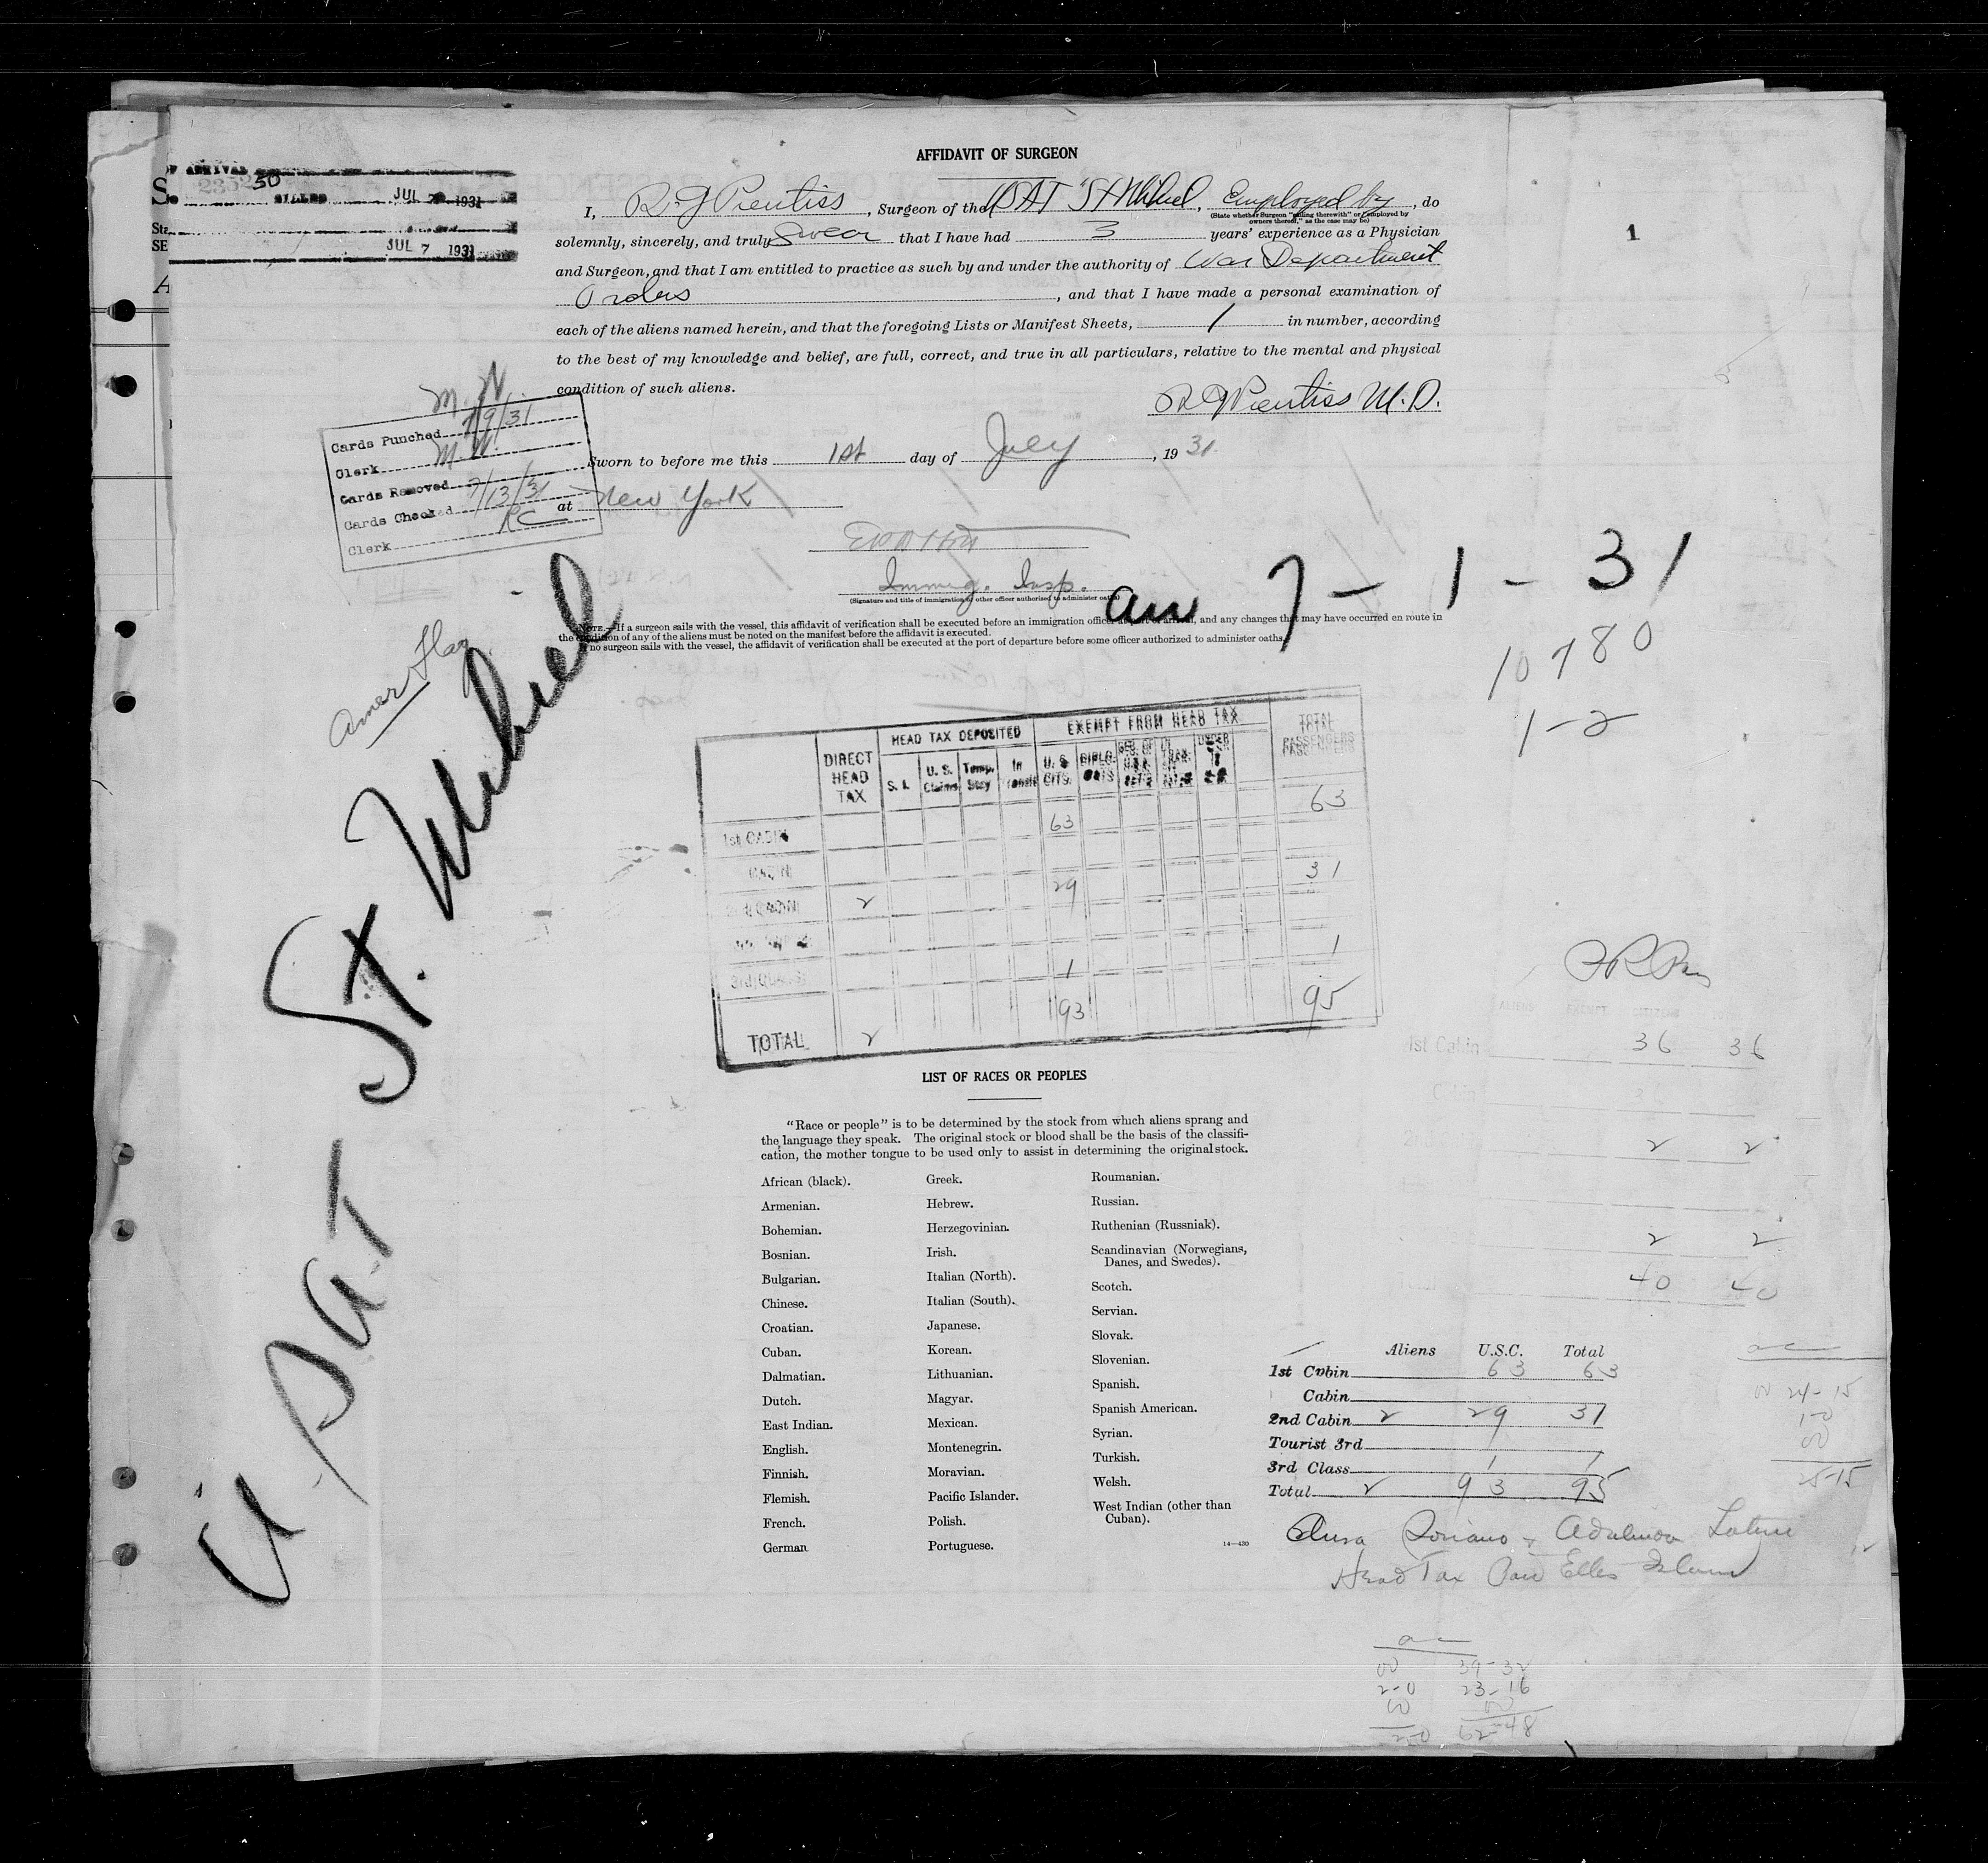 AFFIDAVIT OF SURGEON
OF ARRIVAL
23525 50
JUL 7 1931
JUL 7 1931
I, R. G Prentiss, Surgeon of the USAT St Mihiel, Employed by, do
(State whether Surgeon "sailing therewith" or "employed by
owners thereof," as the case may be)
solemnly, sincerely, and truly Swear that I have had 3 years' experience as a Physician
and Surgeon, and that I am entitled to practice as such by and under the authority of War Department
Orders, and that I have made a personal examination of
each of the aliens named herein, and that the foregoing Lists or Manifest Sheets, 1 in number, according
to the best of my knowledge and belief, are full, correct, and true in all particulars, relative to the mental and physical
condition of such aliens.
R G Prentiss M.D.
1
M. W.
Cards Punched 7/9/31
Clerk M. W.
Cards Removed
Cards Checked 7/13/31
Clerk RC
Sworn to before me this 1st day of July, 1931
at New York
Immig. Insp.
(Signature and title of immigration or other officer authorized to administer oaths)
NOTE.—If a surgeon sails with the vessel, this affidavit of verification shall be executed before an immigration officer at port of arrival, and any changes that may have occurred en route in
the condition of any of the aliens must be noted on the manifest before the affidavit is executed.
If no surgeon sails with the vessel, the affidavit of verification shall be executed at the port of departure before some officer authorized to administer oaths.
arr 7-1-31
10780
1-2
Amer Flag
USAT St. Mihiel
DIRECT HEAD TAX
HEAD TAX DEPOSITED
EXEMPT FROM HEAD TAX
TOTAL PASSENGERS
S. I.
U. S. Claims
Temp. Stay
In Transit
U. S. CITS.
DIPLO. CATS
1st CABIN 63 63
CABIN
2nd CABIN 2 29 31
3rd 1 1
TOTAL 2 93 95
ALIENS EXEMPT CITIZENS
1st Cabin 36 36
Cabin
2 2
2 2
40 40
LIST OF RACES OR PEOPLES
"Race or people" is to be determined by the stock from which aliens sprang and
the language they speak. The original stock or blood shall be the basis of the classifi-
cation, the mother tongue to be used only to assist in determining the original stock.
African (black).
Armenian.
Bohemian.
Bosnian.
Bulgarian.
Chinese.
Croatian.
Cuban.
Dalmatian.
Dutch.
East Indian.
English.
Finnish.
Flemish.
French.
German
Greek.
Hebrew.
Herzegovinian.
Irish.
Italian (North).
Italian (South).
Japanese.
Korean.
Lithuanian.
Magyar.
Mexican.
Montenegrin.
Moravian.
Pacific Islander.
Polish.
Portuguese.
Roumanian.
Russian.
Ruthenian (Russniak).
Scandinavian (Norwegians,
Danes, and Swedes).
Scotch.
Servian.
Slovak.
Slovenian.
Spanish.
Spanish American.
Syrian.
Turkish.
Welsh.
West Indian (other than
Cuban).
14—430
Aliens U.S.C. Total
1st Cabin 63 63
Cabin
2nd Cabin 2 29 31
Tourist 3rd
3rd Class 1 1
Total 2 93 95
24-15
1-0
00
25-15
Soriano
Head Tax Paid Ellis Island
00 39-32
2-0 23-16
00 00
2-0 62-48